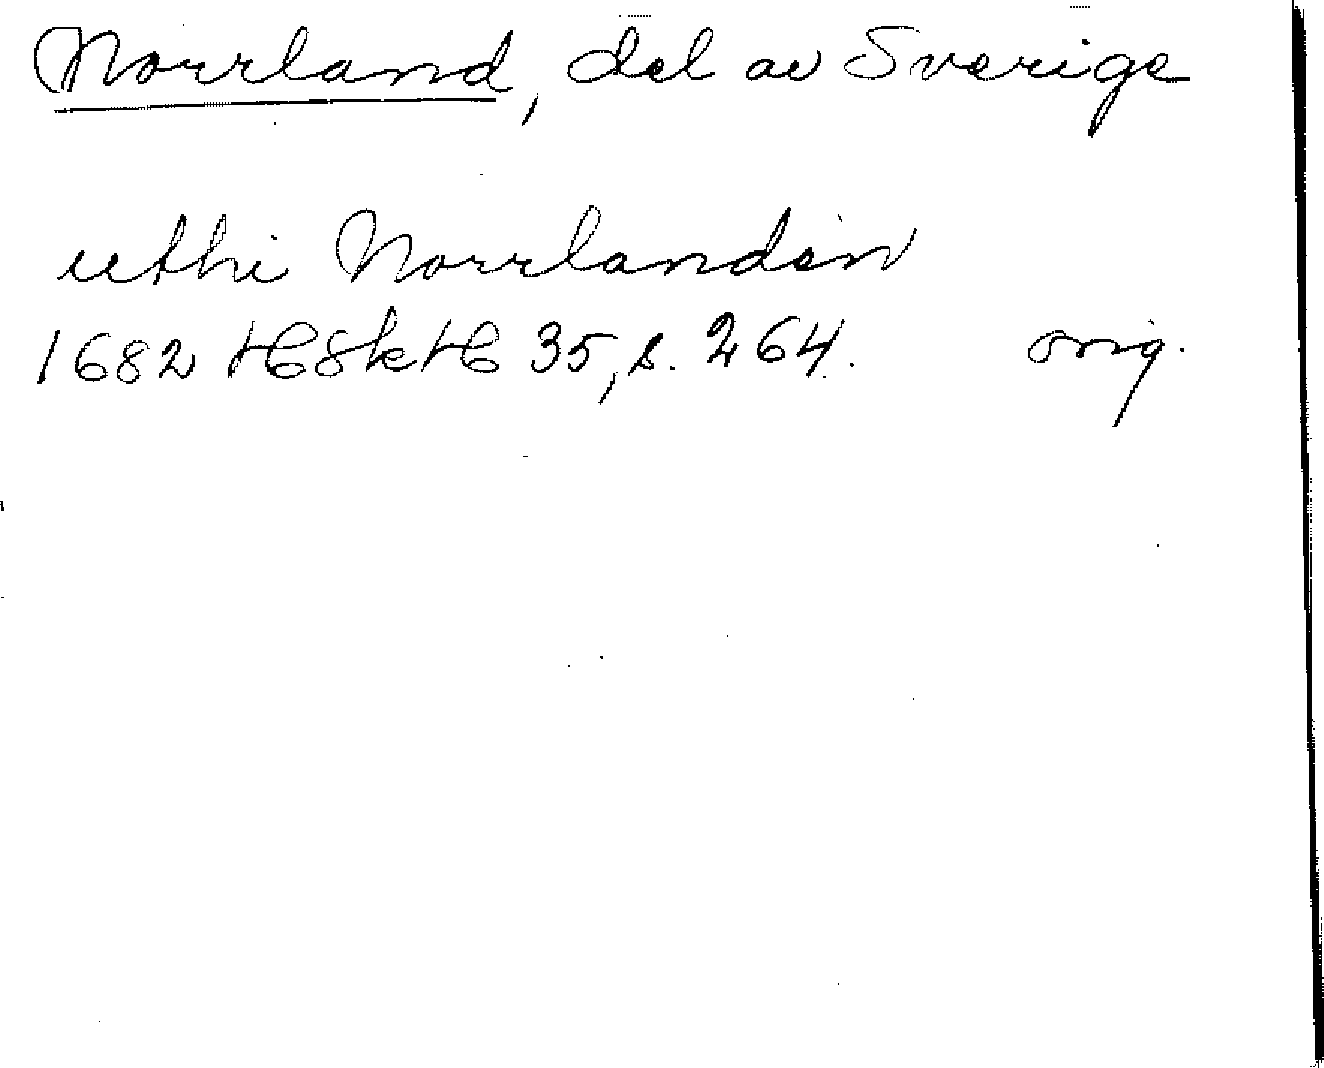 Norrland, del av Sverige
uthi Norrlanden
1682 HSkH 35, s. 264. orig.